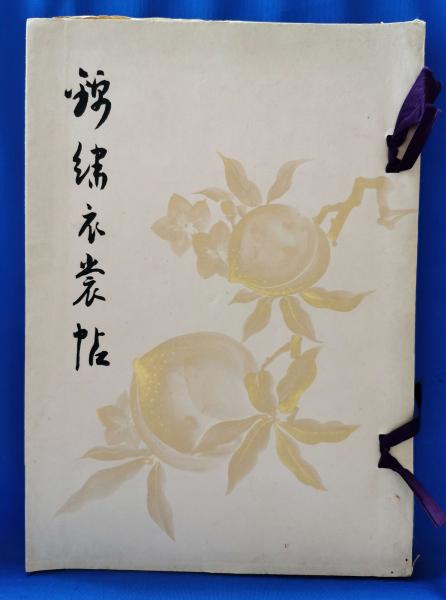 錦繍衣裳帖